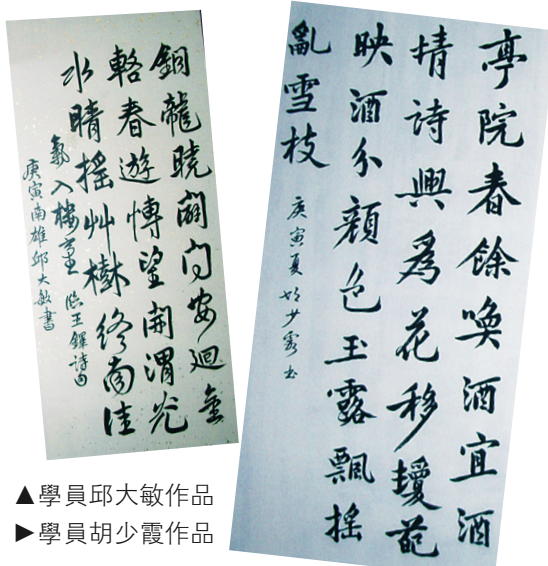 銅龍曉闢問安迴金
輅春遊愽望開渭光
水晴搖艸樹終南佳
氣入樓臺 臨王鐸詩句
庚寅南雄邱大敏書
亭院春餘喚酒宜酒
情詩興爲花移瓊葩
映酒分顏色玉露飄搖
亂雪枝 庚寅夏 胡少霞书
▲學員邱大敏作品
▶學員胡少霞作品